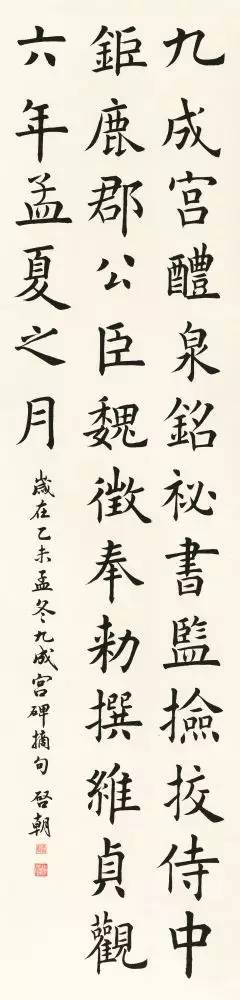 九成宮醴泉銘祕書監撿挍侍中
鉅鹿郡公臣魏徵奉勑撰維貞觀
六年孟夏之月
歲在乙未孟冬九成宮碑摘句 啓朝